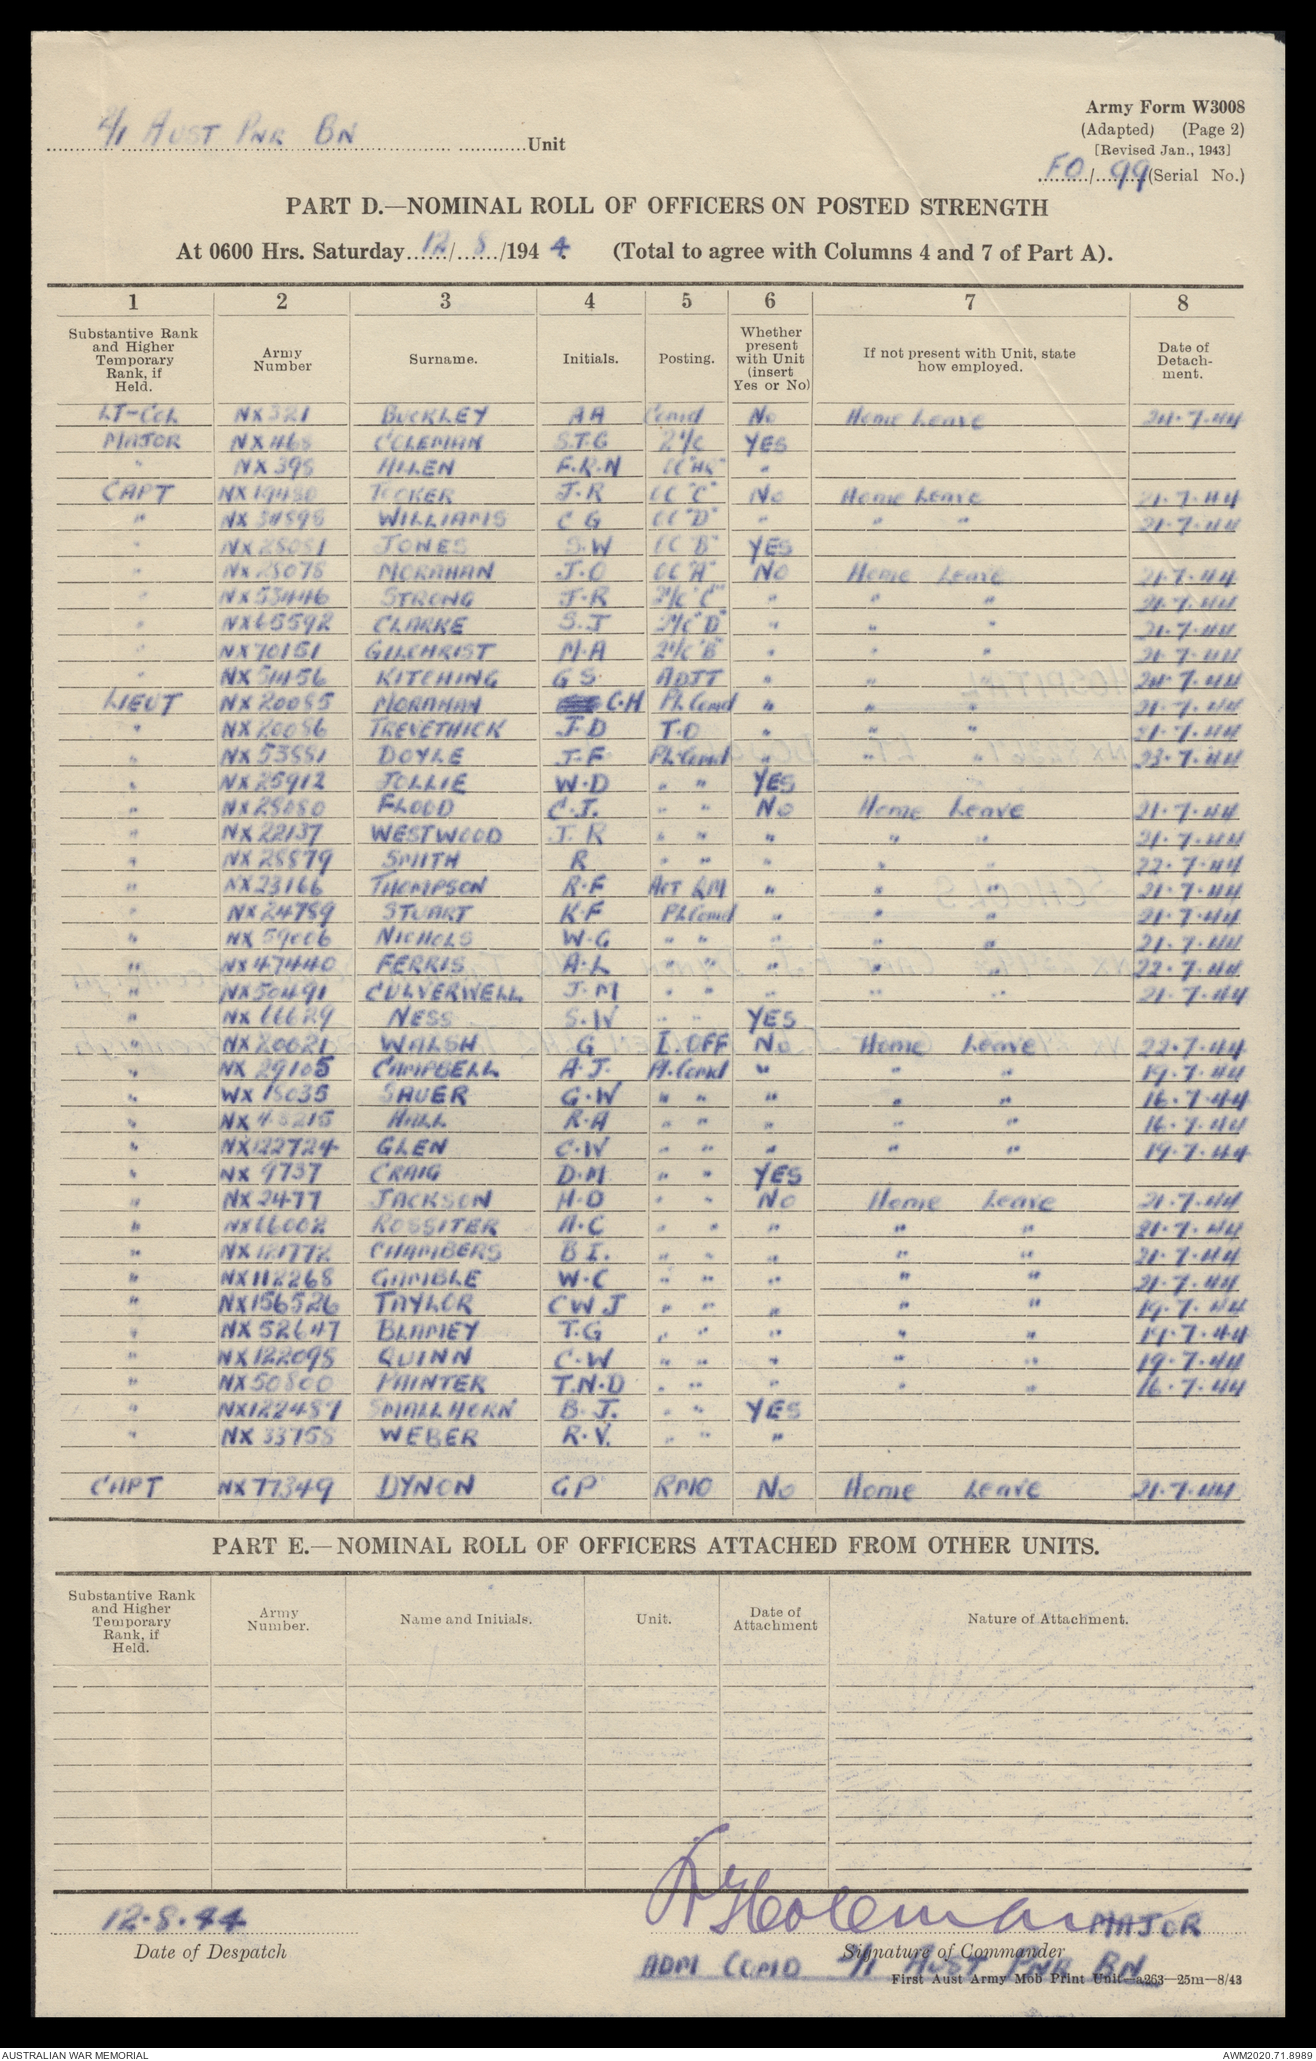 Army Form W3008
(Adapted) (Page 2)
[Revised Jan., 1943]
2/1 AUST PNR BN Unit
FO/99 (Serial No.)
PART D.—NOMINAL ROLL OF OFFICERS ON POSTED STRENGTH
At 0600 Hrs. Saturday 12/8/1944. (Total to agree with Columns 4 and 7 of Part A).
1 2 3 4 5 6 7 8
Substantive Rank and Higher Temporary Rank, if Held. Army Number Surname. Initials. Posting. Whether present with Unit (insert Yes or No) If not present with Unit, state how employed. Date of Detachment.
LT-COL NX321 BUCKLEY AA Comd No Home Leave 24.7.44
MAJOR NX468 COLEMAN S.T.G 2i/c YES
" NX398 ALLEN F.R.N OC "HQ" "
CAPT NX19480 TOCKER J.R OC "C" No Home Leave 21.7.44
" NX34898 WILLIAMS C G OC "D" " " " 21.7.44
" NX28081 JONES S.W OC "B" YES
" NX28078 MORAHAN J.O OC "A" No Home Leave 21.7.44
" NX53446 STRONG J.R 2i/c "C" " " " 21.7.44
" NX65592 CLARKE S.J 2i/c "D" " " " 21.7.44
" NX70151 GILCHRIST M.A 2i/c "B" " " " 21.7.44
" NX51456 KITCHING G S. ADJT " " " 24.7.44
LIEUT NX20085 MORAHAN C.H Pl.Comd " " " 21.7.44
" NX20086 TREVETHICK J.D T.O " " " 21.7.44
" NX53881 DOYLE J.F Pl.Comd " " " 23.7.44
" NX25912 JOLLIE W.D " " YES
" NX28080 FLOOD C.J. " " No Home Leave 21.7.44
" NX22137 WESTWOOD J.R " " " " " 21.7.44
" NX28879 SMITH R " " " " " 22.7.44
" NX23166 THOMPSON R.F ACT QM " " " 21.7.44
" NX24789 STUART K.F Pl.Comd " " " 21.7.44
" NX59006 NICHOLS W.G " " " " " 21.7.44
" NX47440 FERRIS A.L " " " " " 22.7.44
" NX50491 CULVERWELL J.M " " " " " 21.7.44
" NX66629 NESS S.W " " YES
" NX20021 WALSH G I.OFF No Home Leave 22.7.44
" NX29105 CAMPBELL A.J. Pl.Comd " " " 19.7.44
" WX18035 SAUER G.W " " " " " 16.7.44
" NX48215 HALL R.A " " " " " 16.7.44
" NX122724 GLEN C.W " " " " " 19.7.44
" NX9737 CRAIG D.M " " YES
" NX2477 JACKSON H.D " " No Home Leave 21.7.44
" NX66002 ROSSITER A.C " " " " " 21.7.44
" NX121772 CHAMBERS B I. " " " " " 21.7.44
" NX112268 GAMBLE W.C " " " " " 21.7.44
" NX156526 TAYLOR C W J " " " " " 19.7.44
" NX52647 BLAMEY T.G " " " " " 19.7.44
" NX122098 QUINN C.W " " " " " 19.7.44
" NX50800 PAINTER T.N.D " " " " " 16.7.44
" NX122487 SMALLHORN B.J. " " YES
" NX33758 WEBER R.V. " " "
CAPT NX77349 DYNON GP RMO No Home Leave 21.7.44
PART E.—NOMINAL ROLL OF OFFICERS ATTACHED FROM OTHER UNITS.
Substantive Rank and Higher Temporary Rank, if Held. Army Number. Name and Initials. Unit. Date of Attachment Nature of Attachment.
12.8.44 Coleman MAJOR
Date of Despatch Signature of Commander
ADM COMD 2/1 AUST PNR BN
First Aust Army Mob Print Unit—a263—25m—8/43
AUSTRALIAN WAR MEMORIAL AWM2020.71.8989